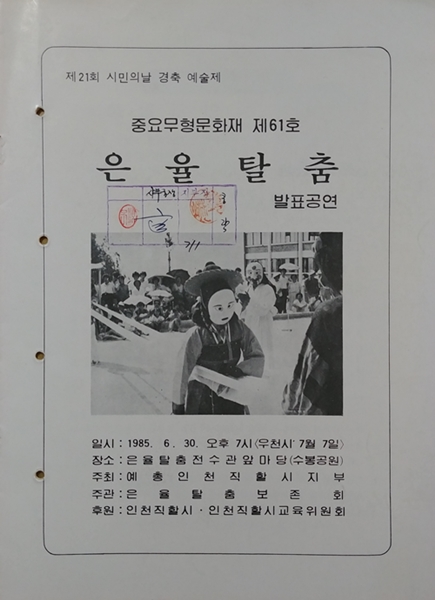 제21회 시민의날 경축 예술제
중요무형문화재 제61호
은 율 탈 춤
발표공연
일시 : 1985. 6. 30. 오후 7시〈우천시 7월 7일〉
장소 : 은율탈춤전수관앞마당(수봉공원)
주최 : 예총인천직할시지부
주관 : 은율탈춤보존회
후원 : 인천직할시 · 인천직할시교육위원회